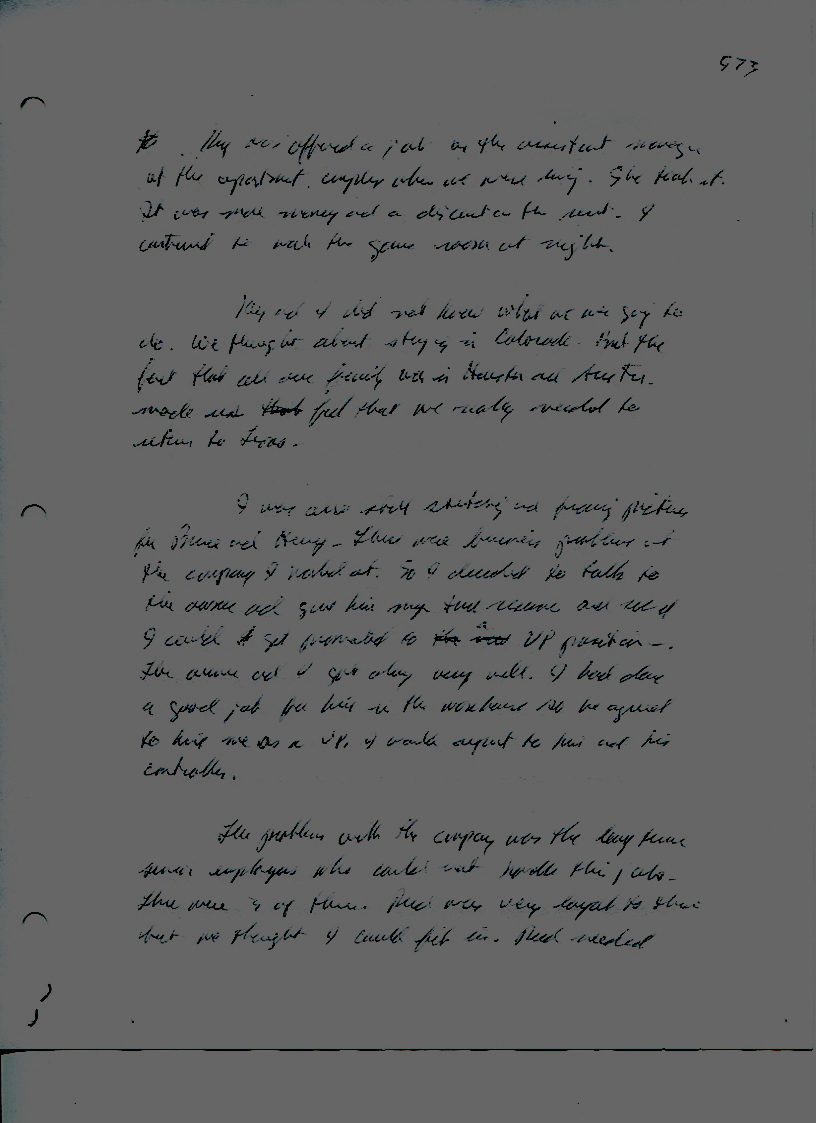 973
was offered a job as the assistant manager
at the apartment complex where we were living. She took it.
It was more money and a discount on the rent. I
continued to work the game room at night.
and I did not know what we were going to
do. We thought about staying in Colorado. But the
fact that all our family was in Houston and Austin
made us feel that we really needed to
return to Texas.
I was also still stretching and framing pictures
for and Henry. There were business problems at
the company I worked at. So I decided to talk to
the owner and give him my resume and see if
I could get promoted to VP position.
The owner and I got along very well. I had done
a good job for him in the warehouse so he agreed
to hire me as a VP. I would report to him and his
controller.
The problem with the company was the long time
senior employees who could not handle their jobs.
There were 3 of them. was very loyal to them
but he thought I could fit in. needed